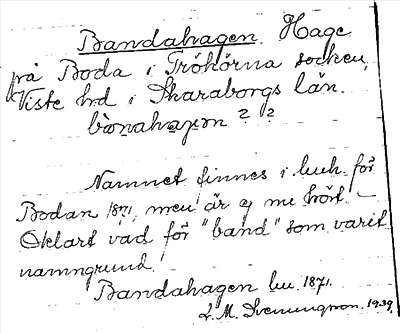 Bandahagen. Hage
på Boda i Tröhörna socken,
Viste hd i Skaraborgs län.
bònahaɡen ? ?
Namnet finnes i huh. för
Bodan 1871, men är ej nu hört. –
Oklart vad för "band" som varit
namngrund.
Bandahagen hu. 1871.
L. M. Svenungsson. 1939.